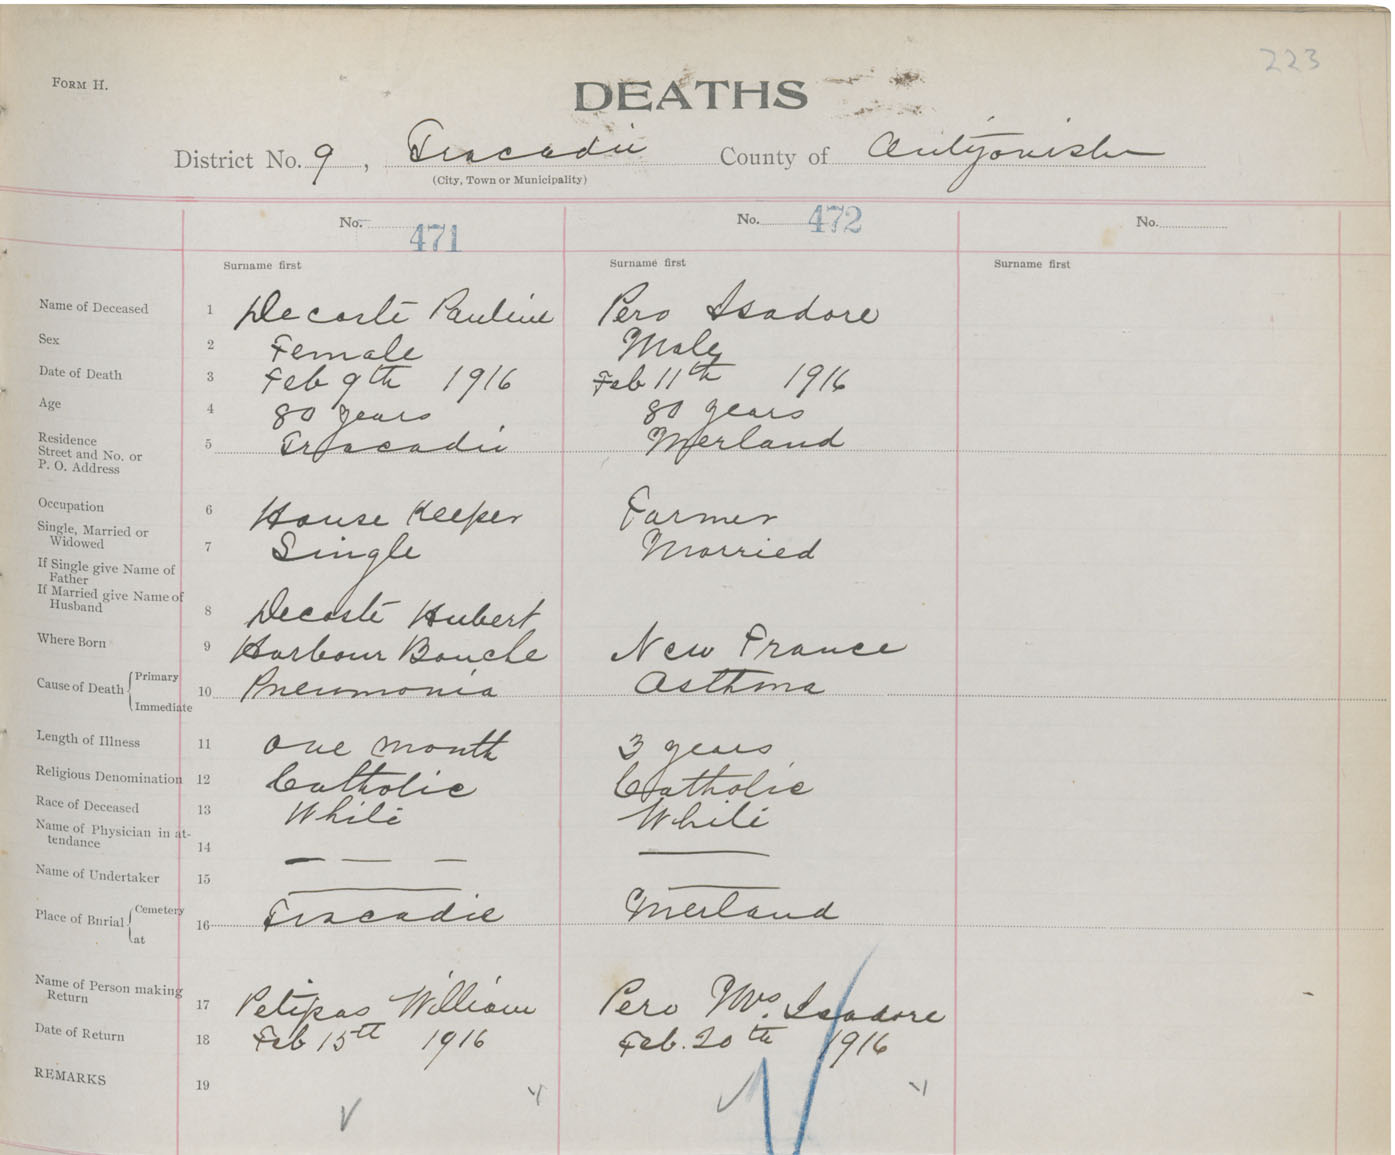 223
FORM H.
DEATHS
District No. 9, Tracadie County of Antigonish
(City, Town or Municipality)
No. 471 No. 472 No.
Surname first Surname first Surname first
Name of Deceased 1 Decoste Pauline Pero Isadore
Sex 2 Female Male
Date of Death 3 Feb 9th 1916 Feb 11th 1916
Age 4 80 years 80 years
Residence
Street and No. or 5 Tracadie Merland
P. O. Address
Occupation 6 House Keeper Farmer
Single, Married or
Widowed 7 Single Married
If Single give Name of
Father
If Married give Name of
Husband 8 Decoste Hubert
Where Born 9 Harbour Bouche New France
Cause of Death { Primary 10 Pneumonia Asthma
Immediate
Length of Illness 11 one month 3 years
Religious Denomination 12 Catholic Catholic
Race of Deceased 13 White White
Name of Physician in at-
tendance 14 — — — —
Name of Undertaker 15 — —
Place of Burial { Cemetery 16 Tracadie Merland
at
Name of Person making
Return 17 Petipas William Pero Mrs. Isadore
Date of Return 18 Feb 15th 1916 Feb. 20th 1916
REMARKS 19